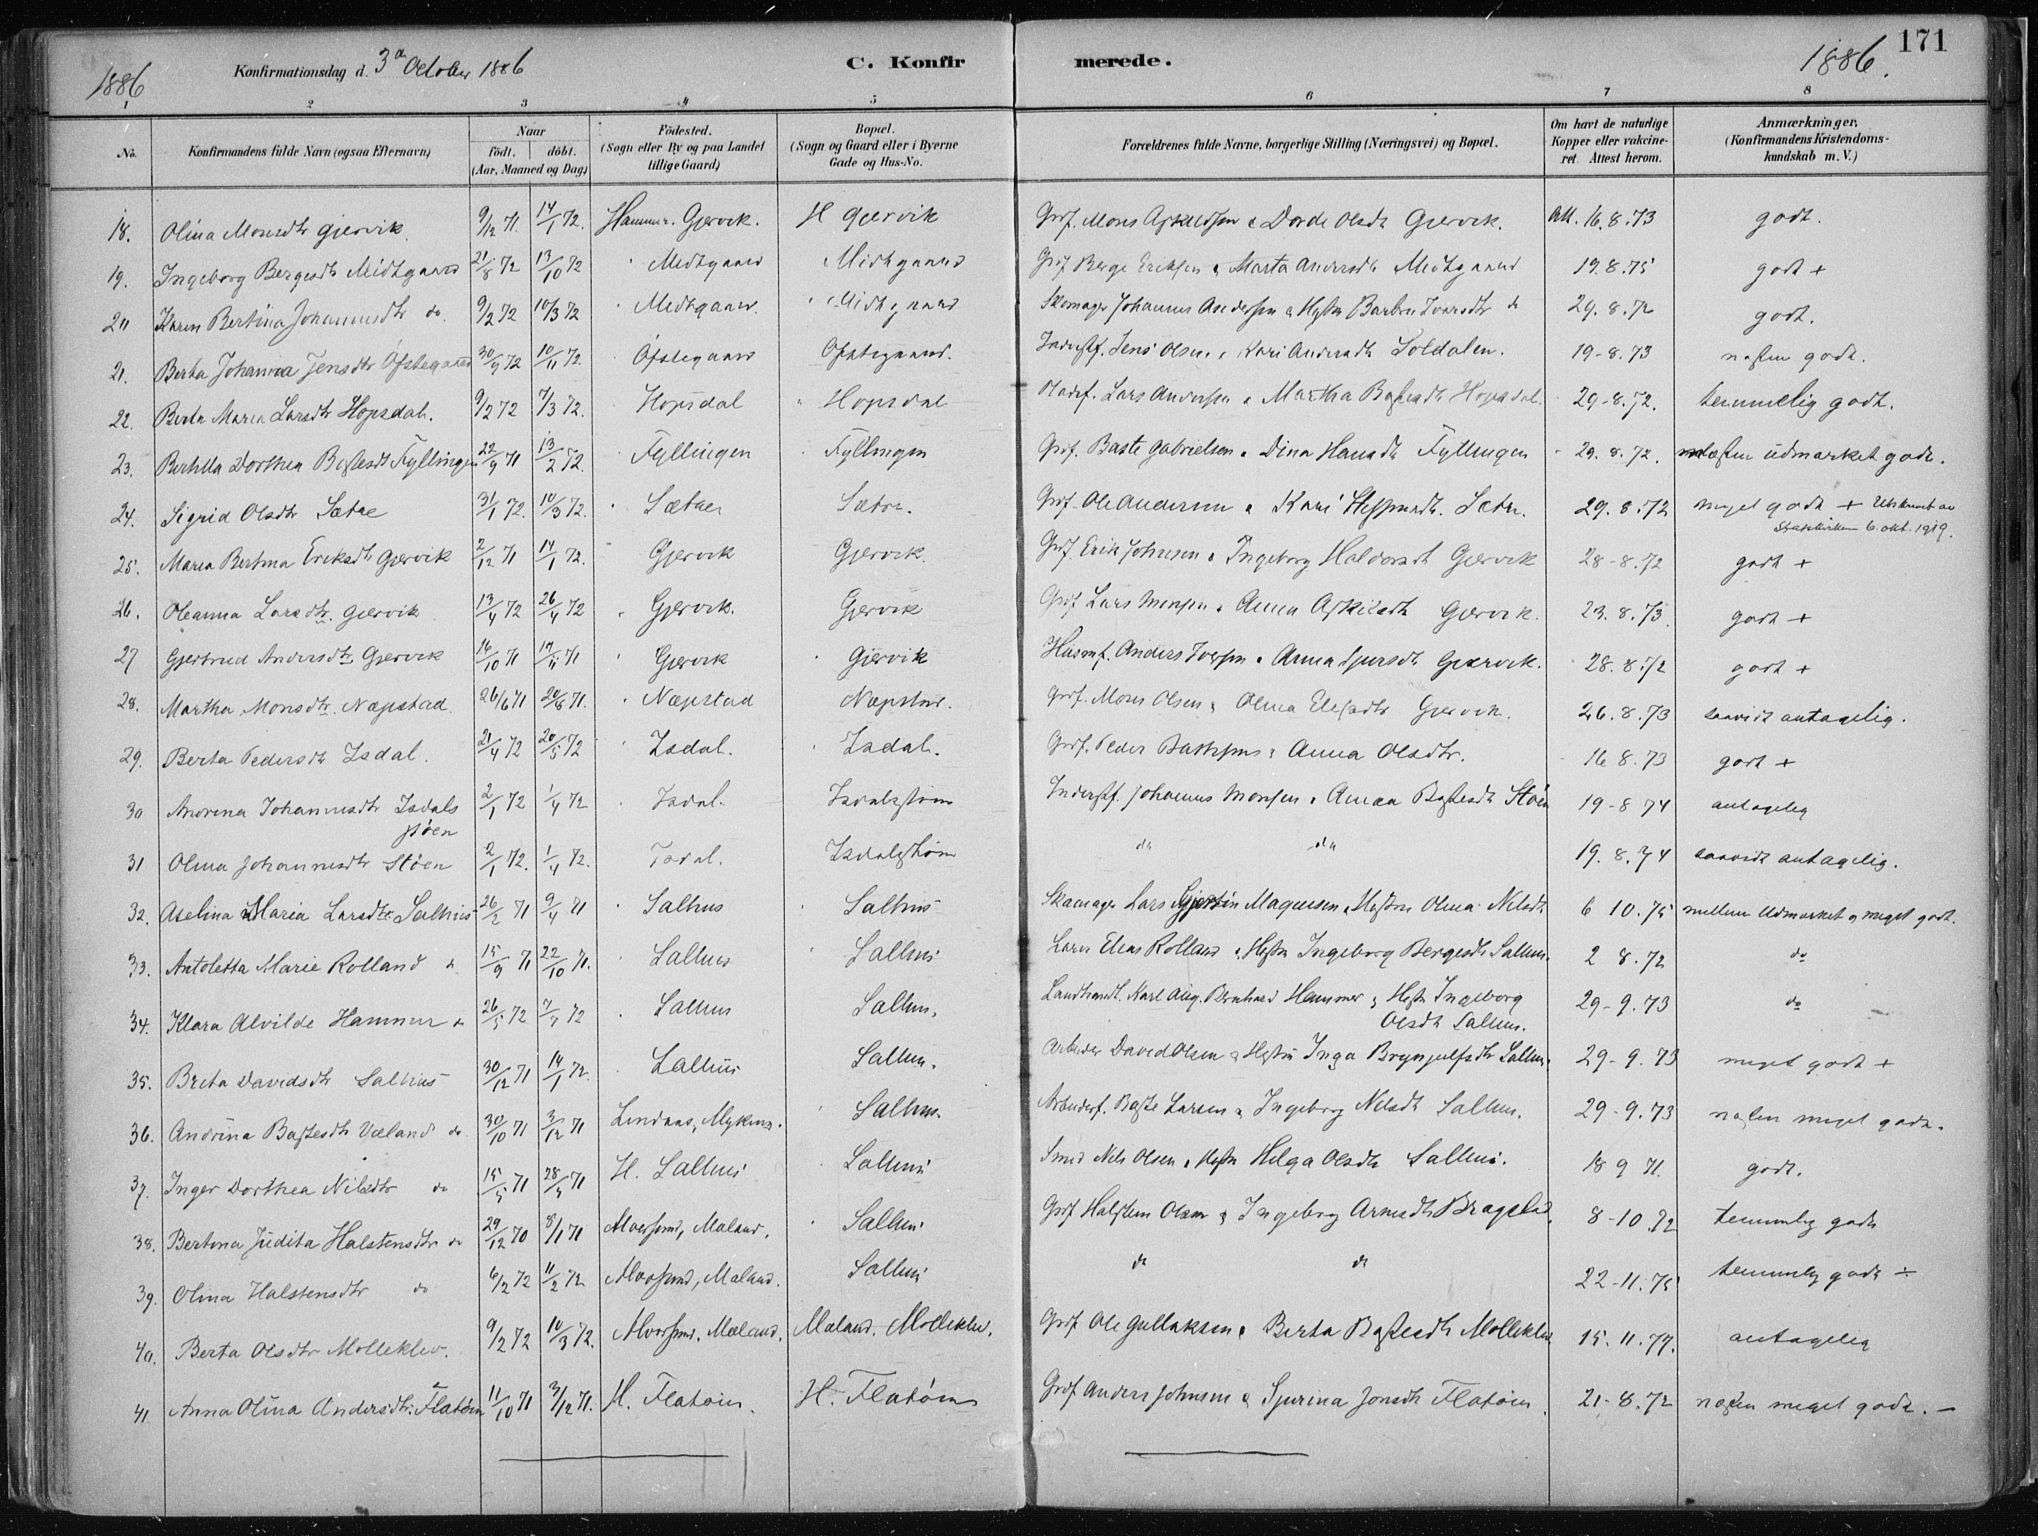 171
1886
Konfirmationsdag d. 3die October 1886
C. Konfirmerede.
1886.
1 2 3 4 5 6 7 8
No.
Konfirmandens fulde Navn (ogsaa Efternavn)
Naar
födt. döbt.
(Aar, Maaned og Dag)
Födested.
(Sogn eller By og paa Landet
tillige Gaard)
Bopæl.
(Sogn og Gaard eller i Byerne
Gade og Hus-No.
Forældrenes fulde Navne, borgerlige Stilling (Næringsvei) og Bopæl.
Om havt de naturlige
Kopper eller vakcine-
ret. Attest herom.
Anmærkninger,
(Konfirmandens Kristendoms-
kundskab m. V.)
18. Olina Monsdtr Gjervik 9/12 71. 14/1 72. Hammer. Gjervik. H Gjervik Grdf. Mons Askildsen & Dorde Olsdtr Gjervik. Att. 16.8.73 godt.
19. Ingeborg Bergesdtr Midtgaard 21/8 72 13/10 72 " Midtgaard " Midtgaard Grdf Berge Eriksen & Marta Andersdtr Midtgaard 19.8.75 godt +
20 Karen Bertina Johannesdtr do. 9/2 72 10/3 72 " Midtgaard. " Midtgaard Skomager Johannes Andersen & Hustru Barbra Ivarsdtr do 29.8.72 godt.
21. Berta Johanna Jensdtr Ofstegaard 30/9 72 10/11 72. " Ofstegaard Ofstegaard. Inderstf. Jens Olsen & Kari Andersdtr Soldalen. 19-8.73 næsten godt.
22. Berta Maria Larsdtr Hopsdal. 9/2 72 7/3 72. " Hopsdal " Hopsdal Lars Andersen & Martha Bastesdtr Hopsdal. 29-8.72. temmelig godt.
23. Bertilla Dorthea Bastesdtr Fyllingen 22/9 71 13/2 72. " Fyllingen " Fyllingen Grdf. Baste Gabrielsen & Dina Hansdtr Fyllingen 29.8.72. næsten udmærket godt.
24. Sigrid Olsdtr Sætre 31/1 72. 10/3 72. " Sætre Sætre. Grdf. Ole Andersen & Kari Sætre. 29.8.72 meget godt + Utskrevet av
Statskirken 6 okt. 1919.
25. Maria Bertina Eriksdtr Gjervik 2/12 71 14/1 72. Gjervik Gjervik. Grdf. Erik Johnsen & Ingeborg Haldorsdtr Gjervik 28-8.72 godt +
26. Oleanna Larsdtr. Gjervik 13/4 72 26/4 72 " Gjervik. Gjervik Grdf. Lars Monsen & Anna Askildsdtr Gjervik. 23.8.73. godt +
27 Gjertrud Andersdtr Gjervik 16/10 71 17/11 71 " Gjervik " Gjervik Husmf. Anders Iversen & Anna Sjursdtr Gjervik. 28.8.72 godt +
28. Martha Monsdtr. Næpstad 26/6 71 20/8 71. " Næpstad Næpstad. Grdf. Mons Olsen & Olina Gjervik. 26.8.73 saavidt antagelig.
29. Berta Pedersdtr Isdal. 21/4 72 20/5 72 " Isdal. " Isdal. Grdf. Peder Bastesen & Anna Olsdtr. 16 8.73 godt +
30 Andrina Johannesdtr Isdals
støen 2/1 72 1/4 72 " Isdal. Isdalstøen Inderstf. Johannes Monsen & Anna Bastesdtr Støen 19-8 74 antagelig
31 Olina Johannesdtr Støen 2/1 72. 1/4 72. Isdal. Isdalstøen do do 19.8.74 saavidt antagelig.
32. Aselina Maria Larsdtr Salhus 26/2 71 9/4 71 " Salhus " Salhus Skomager Lars Gjertsin Magnesen & Hustru Olina Nilsdtr 6 10.75 mellem udmærket og meget godt.
33. Antoletta Marie Rolland do 15/9 71 22/10 71. " Salhus " Salhus Elias Rolland & Hustru Ingeborg Bergesdtr Salhus. 2 8.72 do
34. Klara Alvilde Hammer do 26/5 72 7/7 72 " Salhus Salhus. Landhandl. Karl Aug. Bernhard Hammer & Hustru Ingeborg
Olsdtr Salhus. 29-9.73 do
35. Brita Davidsdtr Salhus 30/12 71 14/1 72. " Salhus Salhus. Arbeider David Olsen & Hustru Inga Brynjulfsdtr Salhus. 29-9.73 meget godt +
36. Andrina Bastesdtr Væland do 30/10 71 3/12 71 Lindaas, Mykins. " Salhus. Arbeiderf. Baste Larsen & Ingeborg Nilsdtr Salhus. 29-9.73 næsten meget godt.
37. Inger Dorthea Nilsdtr do 15/5 71 28/5 71 H. Salhus Salhus Smed Nils Olsen & Hustru Helga Olsdtr Salhus. 18 9 71. godt.
38. Bertina Judita Halstensdtr do 29/12 70 8/1 71 Alversund, Maland. " Salhus Grdf. Halsten Olsen & Ingeborg Arnesdtr Bragstad. 8-10.72 temmelig godt
39. Olina Halstensdtr do 6/2 72 11/2 72 Alversund, Maland. Salhus do do 22-11.75 temmelig godt ÷
40. Berta Olsdtr Molleklev. 9/2 72 10/3 72. Alversund, Mæland. Mæland. Molleklev. Grdf Ole Gullaksen & Berta Bastesdtr Molleklev 15.11.77. antagelig
41 Anna Olina Andersdtr. Flatøen 11/10 71 3/12 71. H. Flatøen. H. Flatøen Grdf Anders Johnsen & Sjurina Jonsdtr Flatøen. 21-8.72 næsten meget godt. —